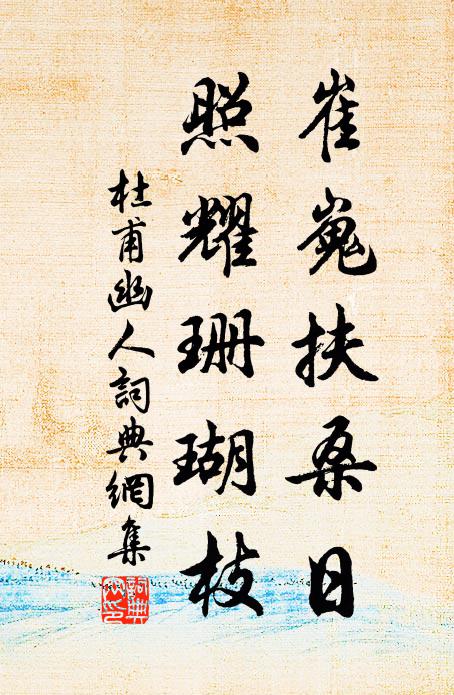 崔嵬扶桑日
照耀珊瑚枝
杜甫幽人詞典網集